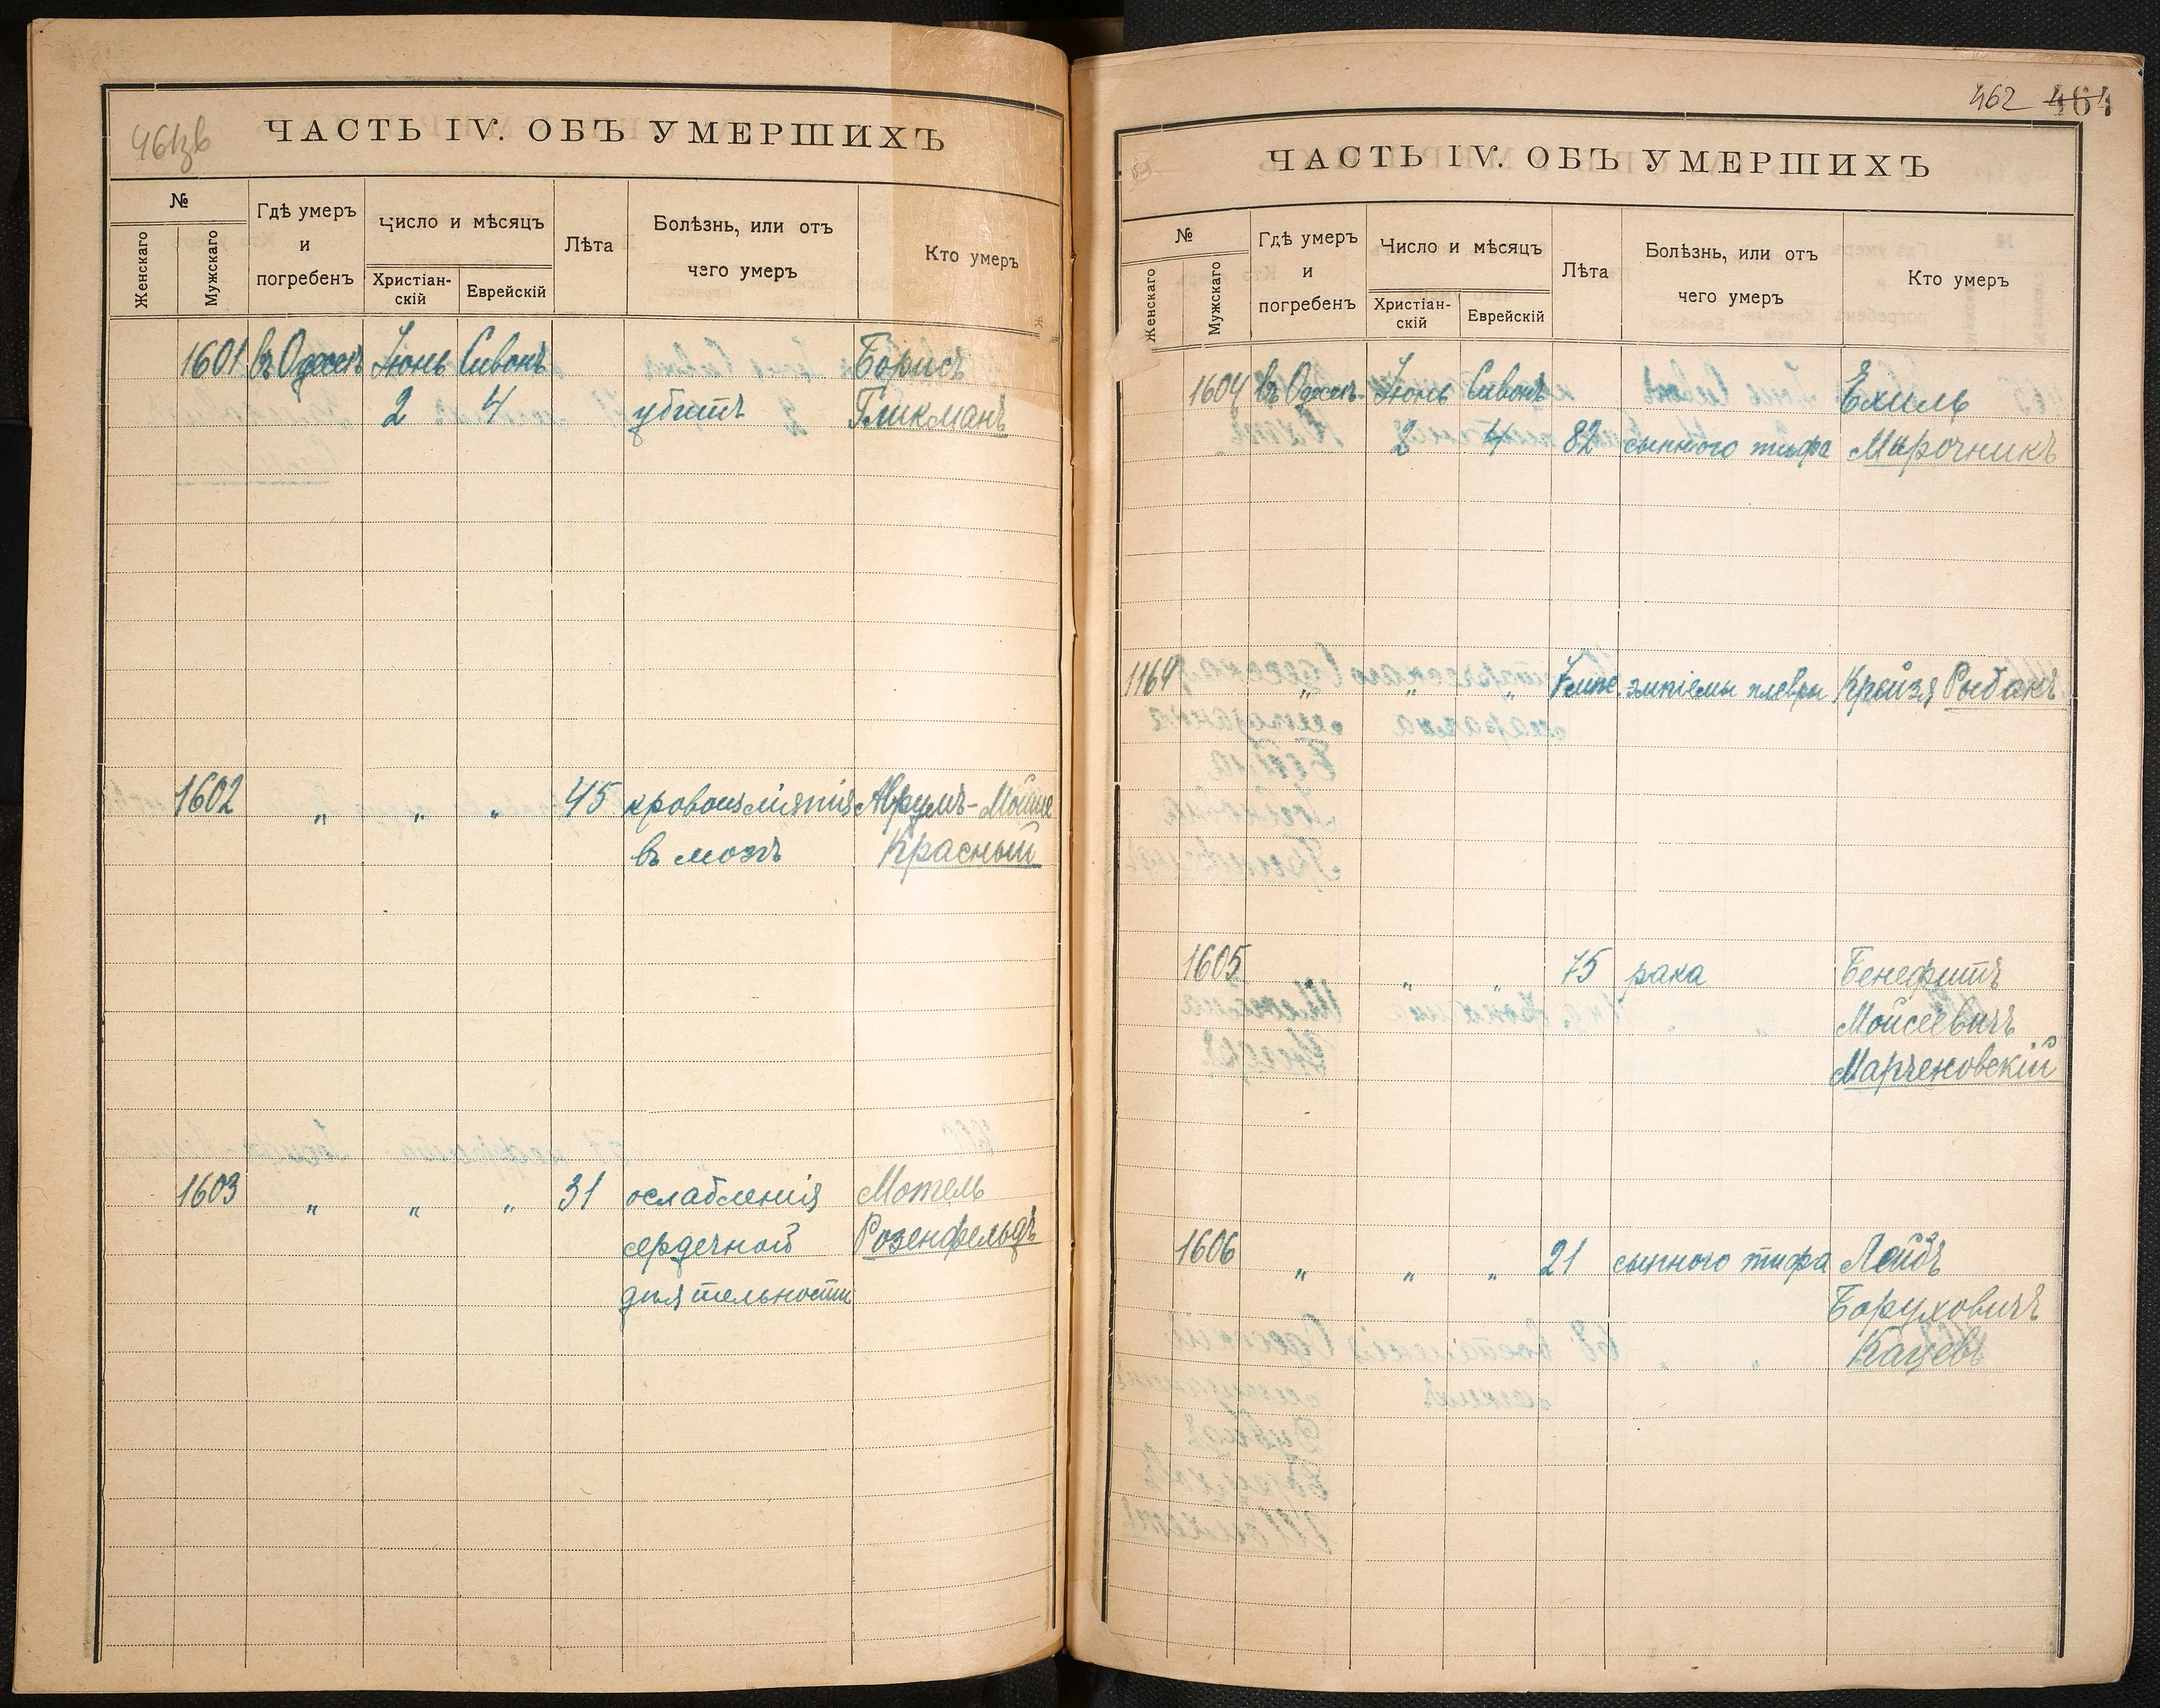 461зв
ЧАСТЬ IV. ОБЪ УМЕРШИХЪ
№
Женскаго
Мужскаго
Гдѣ умеръ
и
погребенъ
Число и мѣсяцъ
Христіан-
скій
Еврейскій
Лѣта
Болѣзнь, или отъ
чего умеръ
Кто умеръ
1601 въ Одессѣ Іюнь Сивонъ Борисъ
2 4 убитъ Гликманъ
1602 " " " 45 кровоизліянія Аврумъ-Мойше
въ мозгъ Красный
1603 " " " 31 ослабленія Мотель
сердечной Розенфельдъ
дѣятельности
462 464
ЧАСТЬ IV. ОБЪ УМЕРШИХЪ
№
Женскаго
Мужскаго
Гдѣ умеръ
и
погребенъ
Число и мѣсяцъ
Христіан-
скій
Еврейскій
Лѣта
Болѣзнь, или отъ
чего умеръ
Кто умеръ
1604 въ Одессѣ Іюнь Сивонъ Ехиль
2 4 82 сыпного тифа Марочникъ
1164 " " " эмпіемы плевры Крейзя Рыбакъ
1605 " " " 75 рака Бенефитъ
Мойсеевичъ
Марченовскій
1606 " " " 21 сыпного тифа Лейбъ
Боруховичъ
Кацевъ